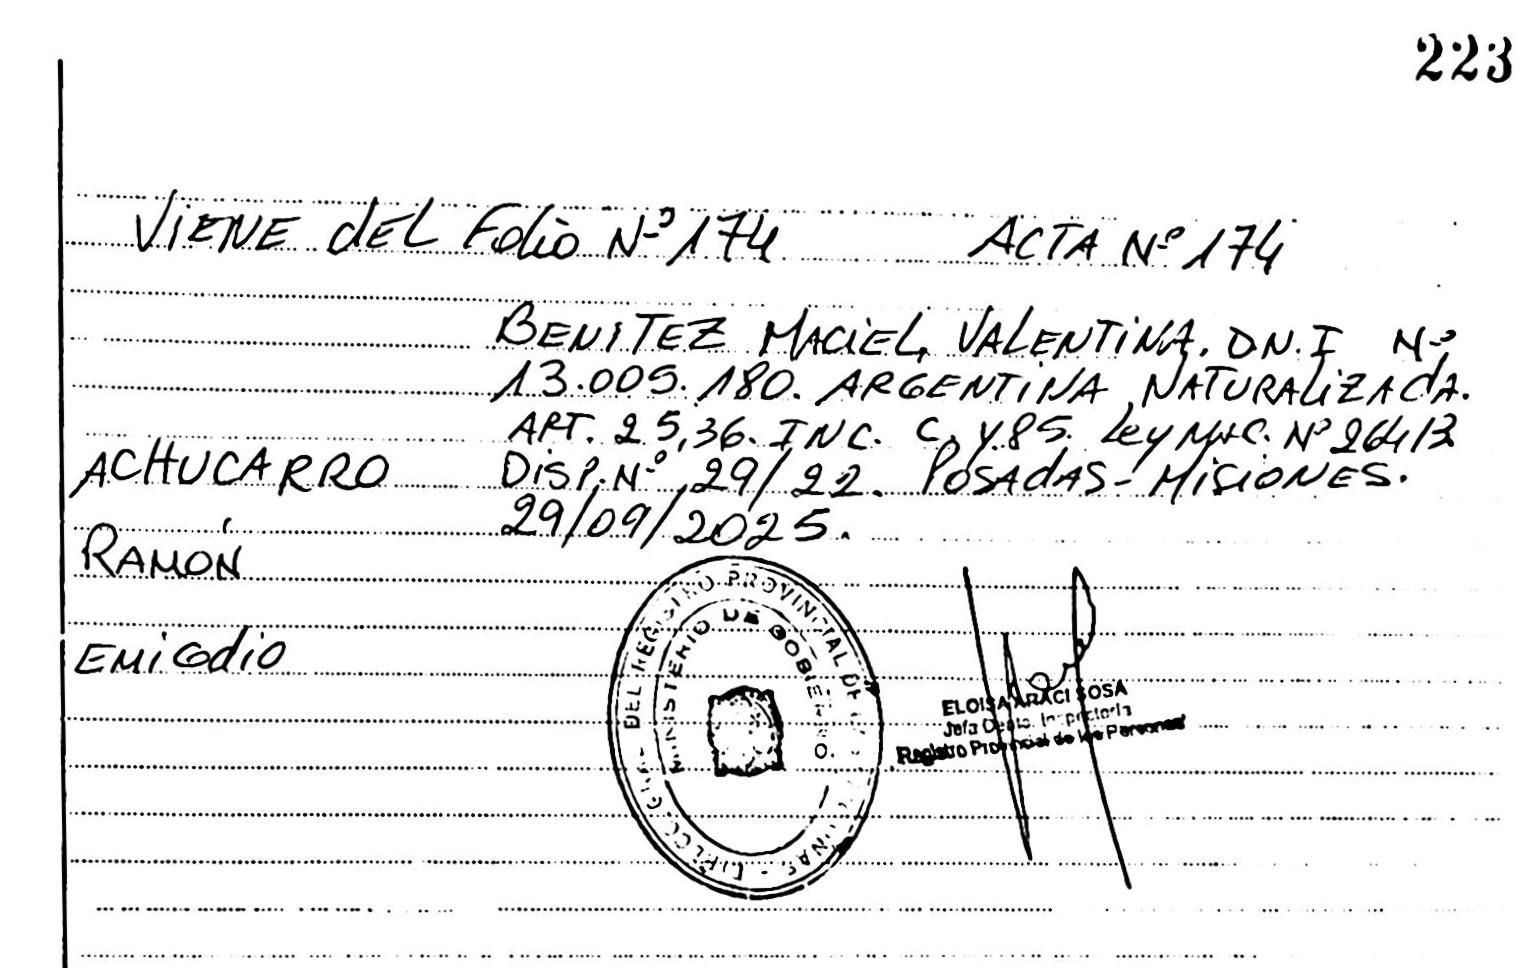 223
VIENE dEL Folio Nº 174 ACTA Nº 174
BENITEZ MACIEL, VALENTINA. D.N.I Nº
13.005.180. ARGENTINA NATURALIZADA.
ART. 25,36. INC. C, Y 85. Ley Nac. Nº 26413
ACHUCARRO DISP. Nº 29/22. POSADAS - MISIONES.
29/09/2025.
RAMÓN
EMIGdIO
DEL REGISTRO PROVINCIAL DE
MINISTERIO DE GOBIERNO
ELOISA ARACI SOSA
Jefa Depto. Inspectoría
Registro Provincial de las Personas